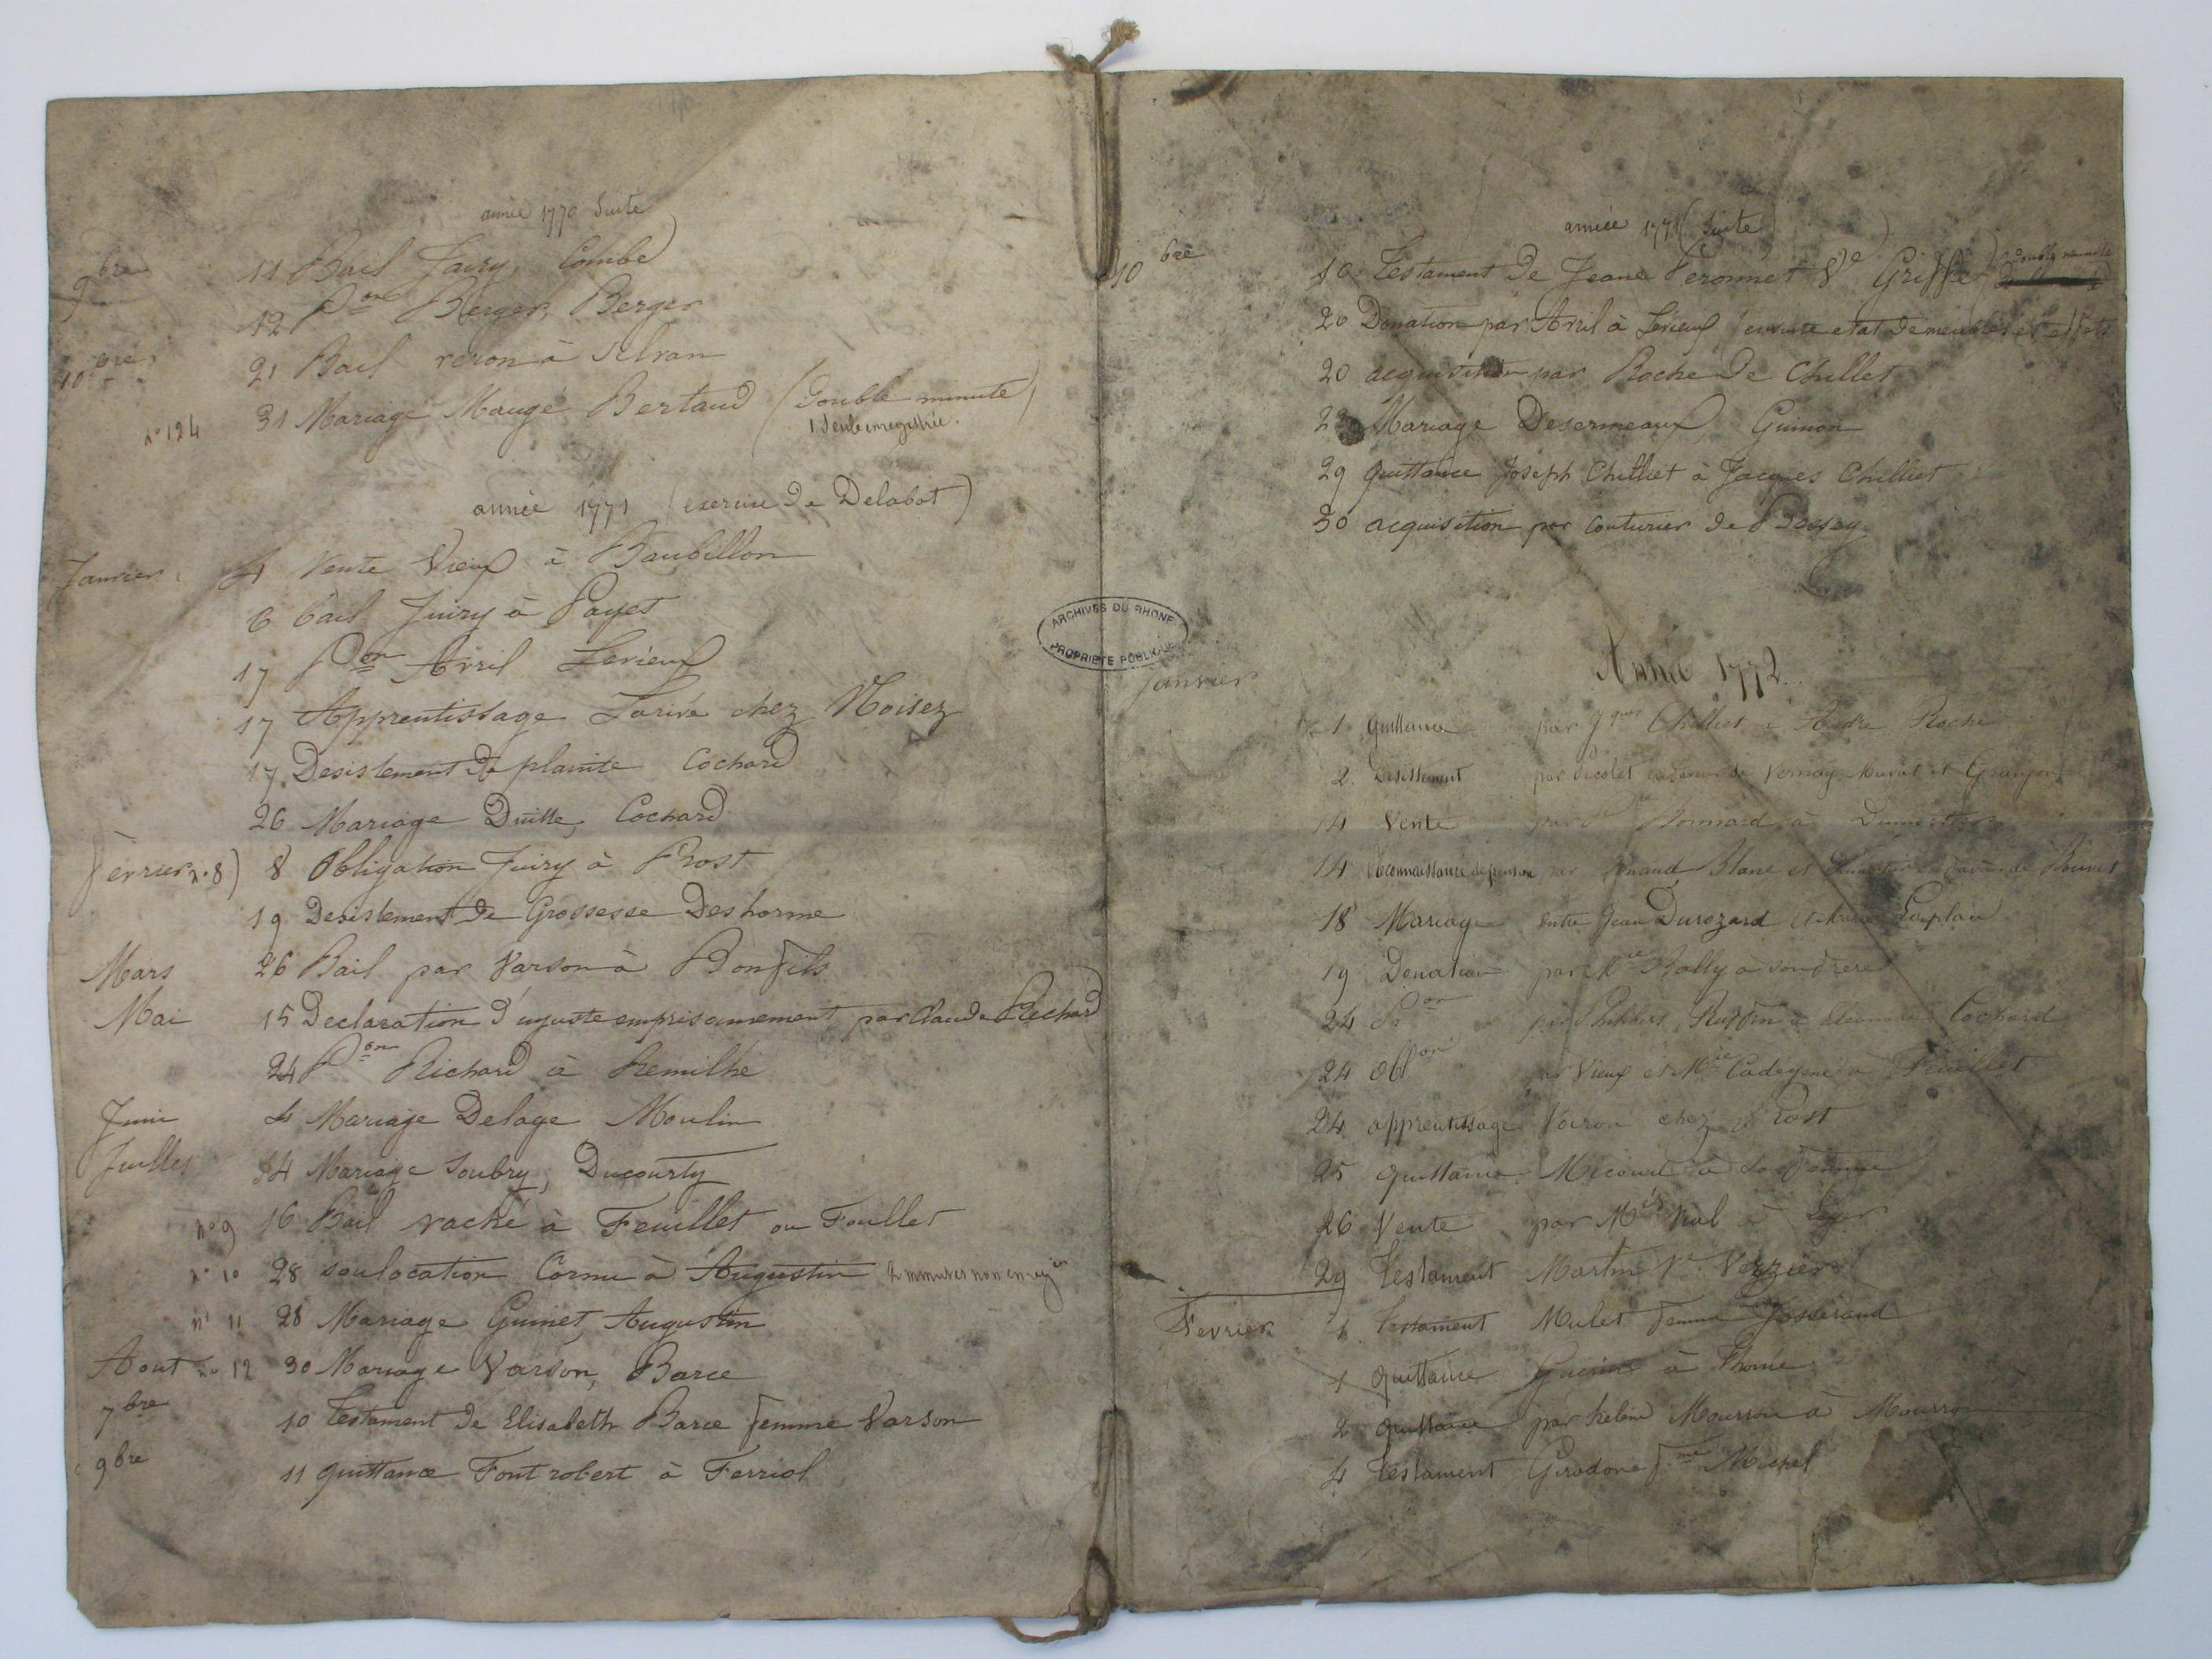 année 1770 Suite
9bre 11 Bail Juiry, Combe
12 Pon Berger, Berger
10bre 21 Bail veron à
n° 124 31 Mariage Maugé Bertaud (double minute)
1 Seule enregistrée.
année 1771 (exercice De Delabat)
Janvier 4 Vente Vieux à Baubillon
6 bail Juiry à Payet
17 Pon Avril Levieux
17 Apprentissage Larive chez Moisez
17 Desistement de plainte Cochard
26 Mariage Duille, Cochard
Fevrier n°8) 8 Obligation Juiry à Prost
19 Desistement De Grossesse Deshorme
Mars 26 Bail par Varson à Bonfils
Mai 15 Declaration d'injuste emprisonnement par Claude Richard
24 Pon Richard à Remilhe
Juin 4 Mariage Delage Moulin
Juillet 14 Mariage Soubry, Ducourty
n° 9 16 Bail vaché à Feuillet ou Foullet
n° 10 28 soulocation Cornu à Augustin 2 minutes non
n° 11 28 Mariage Guinet, Augustin
Aout n° 12 30 Mariage Varson, Barce
7bre 10 Testament De Elisabeth Barce femme Varson
9bre 11 quittance Fontrobert à Ferriol
ARCHIVES DU RHONE
PROPRIÉTÉ PUBLIQUE
année 1771 (Suite)
10bre 10 Testament De Jeane Peronnet Ve Griffe (Double minute
20 Donation par Avril à Levieux, ensuite etat de meubles et effets
20 acquisition par Roche De Chillet
Mariage Desermeaux Guinon
29 quittance Joseph Chilliet à Jacques Chilliet
30 acquisition par Couturier de Bessey
Année 1772.
Janvier
1 quittance par Jques Chilliet à Roche
2. Desistement par en faveur de Vernay Muvat et Granjon
14 Vente par Bonnard à
14 Reconnaissance de pension par Blanc et en faveur de
18 Mariage entre Jean Durozard et Laplace
19 Donation par Mie Bally à son frere
24 Pon par Ruffin à Cochard
24 Obon par Vieux et Mie à Feuillet
24 apprentissage Voiron chez Prost
25 quittance Micoud à
26 Vente par Vial à
29 Testament Martin Ve Verzier
Fevrier 1 Testament Mulet femme Josserand
1 quittance à Thomé
2 quittance par helene Mourron à Mourron
4 Testament Girodone fme Michel